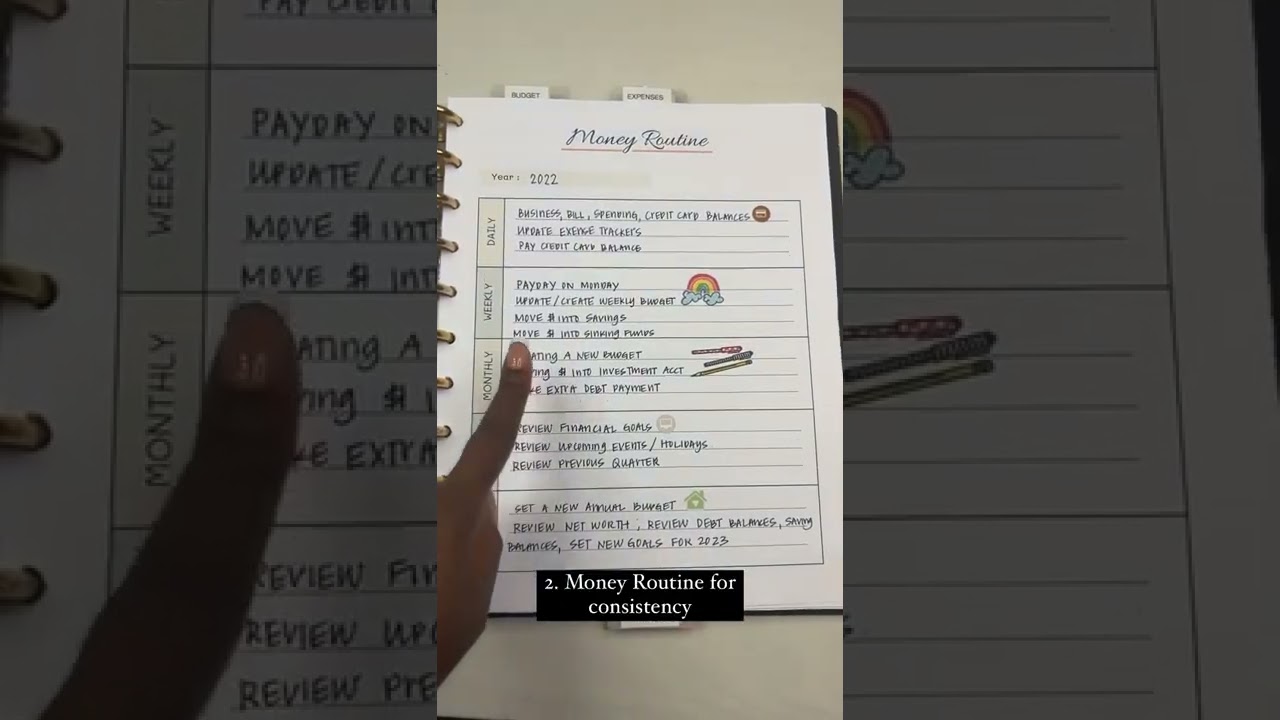 BUDGET
EXPENSES
Money Routine
Year: 2022
DAILY
BUSINESS, BILL, SPENDING, CREDIT CARD BALANCES
UPDATE EXENSE TRACKERS
PAY CREDIT CARD BALANCE
WEEKLY
PAYDAY ON MONDAY
UPDATE/CREATE WEEKLY BUDGET
MOVE $ INTO SAVINGS
MOVE $ INTO SINKING FUNDS
MONTHLY
ATING A NEW BUDGET
ING $ INTO INVESTMENT ACCT
EXTRA DEBT PAYMENT
REVIEW FINANCIAL GOALS
REVIEW UPCOMING EVENTS / HOLIDAYS
REVIEW PREVIOUS QUARTER
SET A NEW ANNUAL BUDGET
REVIEW NET WORTH, REVIEW DEBT BALANCES, SAVING
BALANCES, SET NEW GOALS FOR 2023
2. Money Routine for
consistency